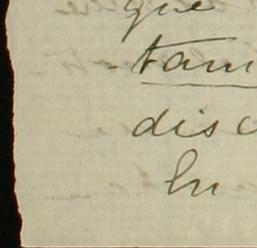 que
tam
disc
In